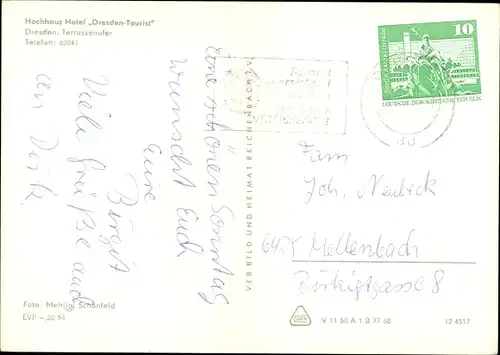 Hochhaus Hotel „Dresden-Tourist"
Dresden, Terrassenufer
Telefon: 63041
Einen schönen Sonntag
wünscht Euch
Eure
Birgit
Viele Grüße auch
an Dirk
VEB BILD UND HEIMAT REICHENBACH i.V.
10
DEUTSCHE DEMOKRATISCHE REPUBLIK
Fam
Joh. Neubeck
Mellenbach
Birkigtgasse 8
Foto: Schönfeld
EVP –,20 M
V 11 50 A 1 B 77 68
12 4517